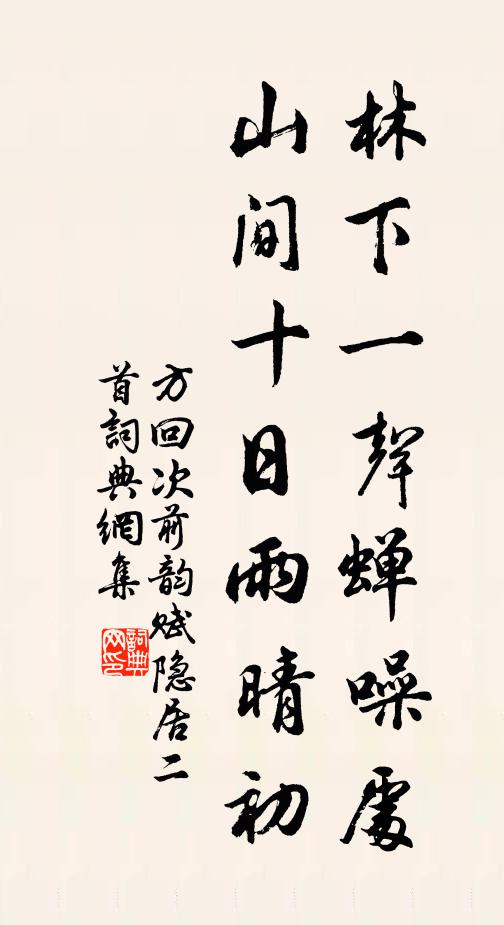 林下一聲蝉噪處
山间十日雨晴初
方回次前韵赋隐居二
首詞典網集
詞典网印